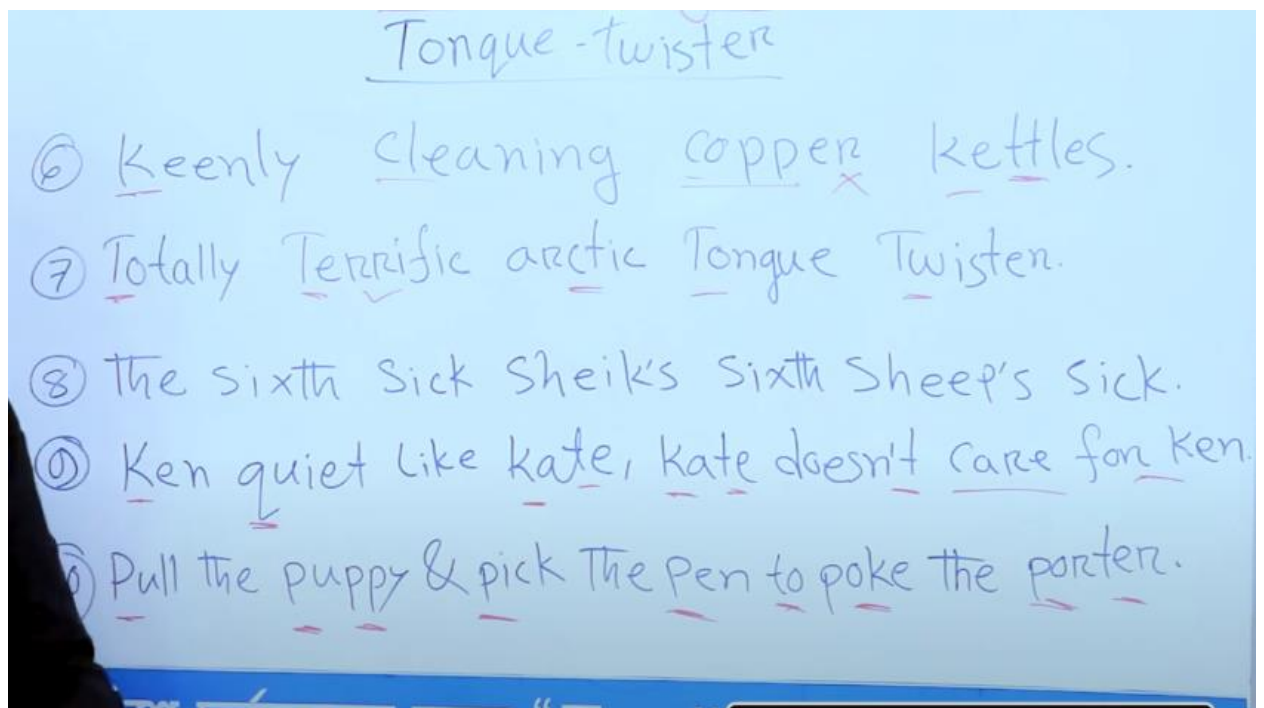 Tongue-twister
⑥ Keenly cleaning copper kettles.
⑦ Totally Terrific arctic Tongue Twister.
⑧ The sixth Sick Sheik's Sixth Sheep's Sick.
⑨ Ken quiet like kate, kate doesn't care for Ken.
Pull the puppy & pick The pen to poke the porter.